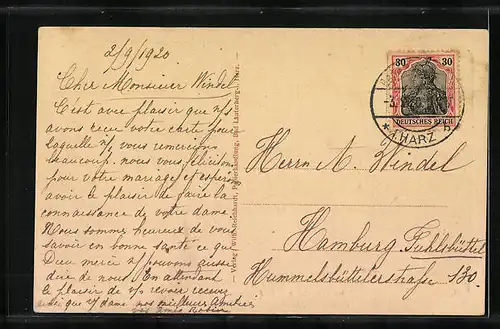 2/9/1920
Cher Monsieur Windel
C'est avec plaisir que n/
avons reçu votre carte pour
laquelle n/ vous remercions
beaucoup. nous vous félicitons
pour votre mariage et espérons
avoir le plaisir de faire la
connaissance de votre dame.
Nous somme heureux de vous
savoir en bonne santé ce que
Dieu merci n/ pouvons aussi
dire de nous. En attendant
le plaisir de v/s revoir recevez
ainsi que v/ dame nos meilleurs amitiés
vos amis Robin
Verlag: Wilh. Papierhandlung, Bad Lauterberg, Harz.
30 30
DEUTSCHES REICH
* HARZ
Herrn A. Windel
Hamburg Fuhlsbüttel
Hummelsbüttelerstraße 130.